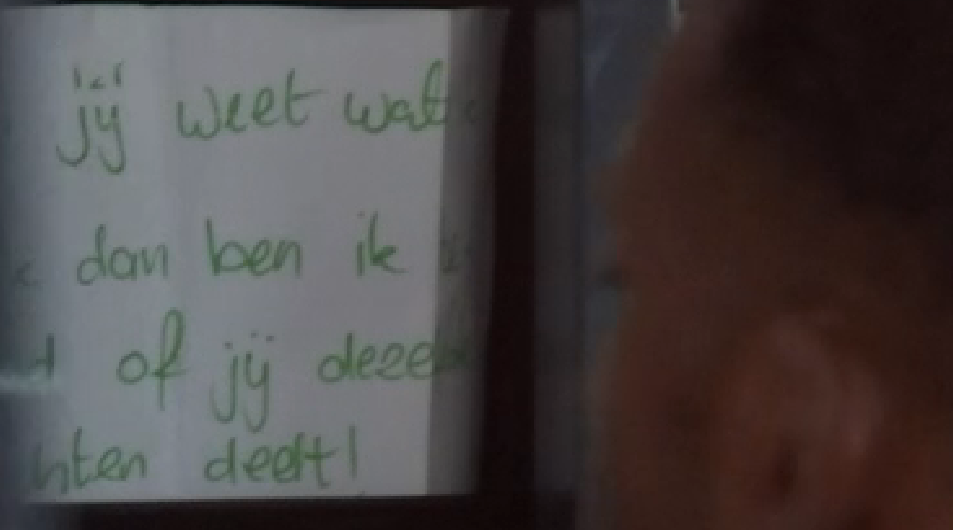 jij weet wat
dan ben ik
of jij deze
hten deelt!